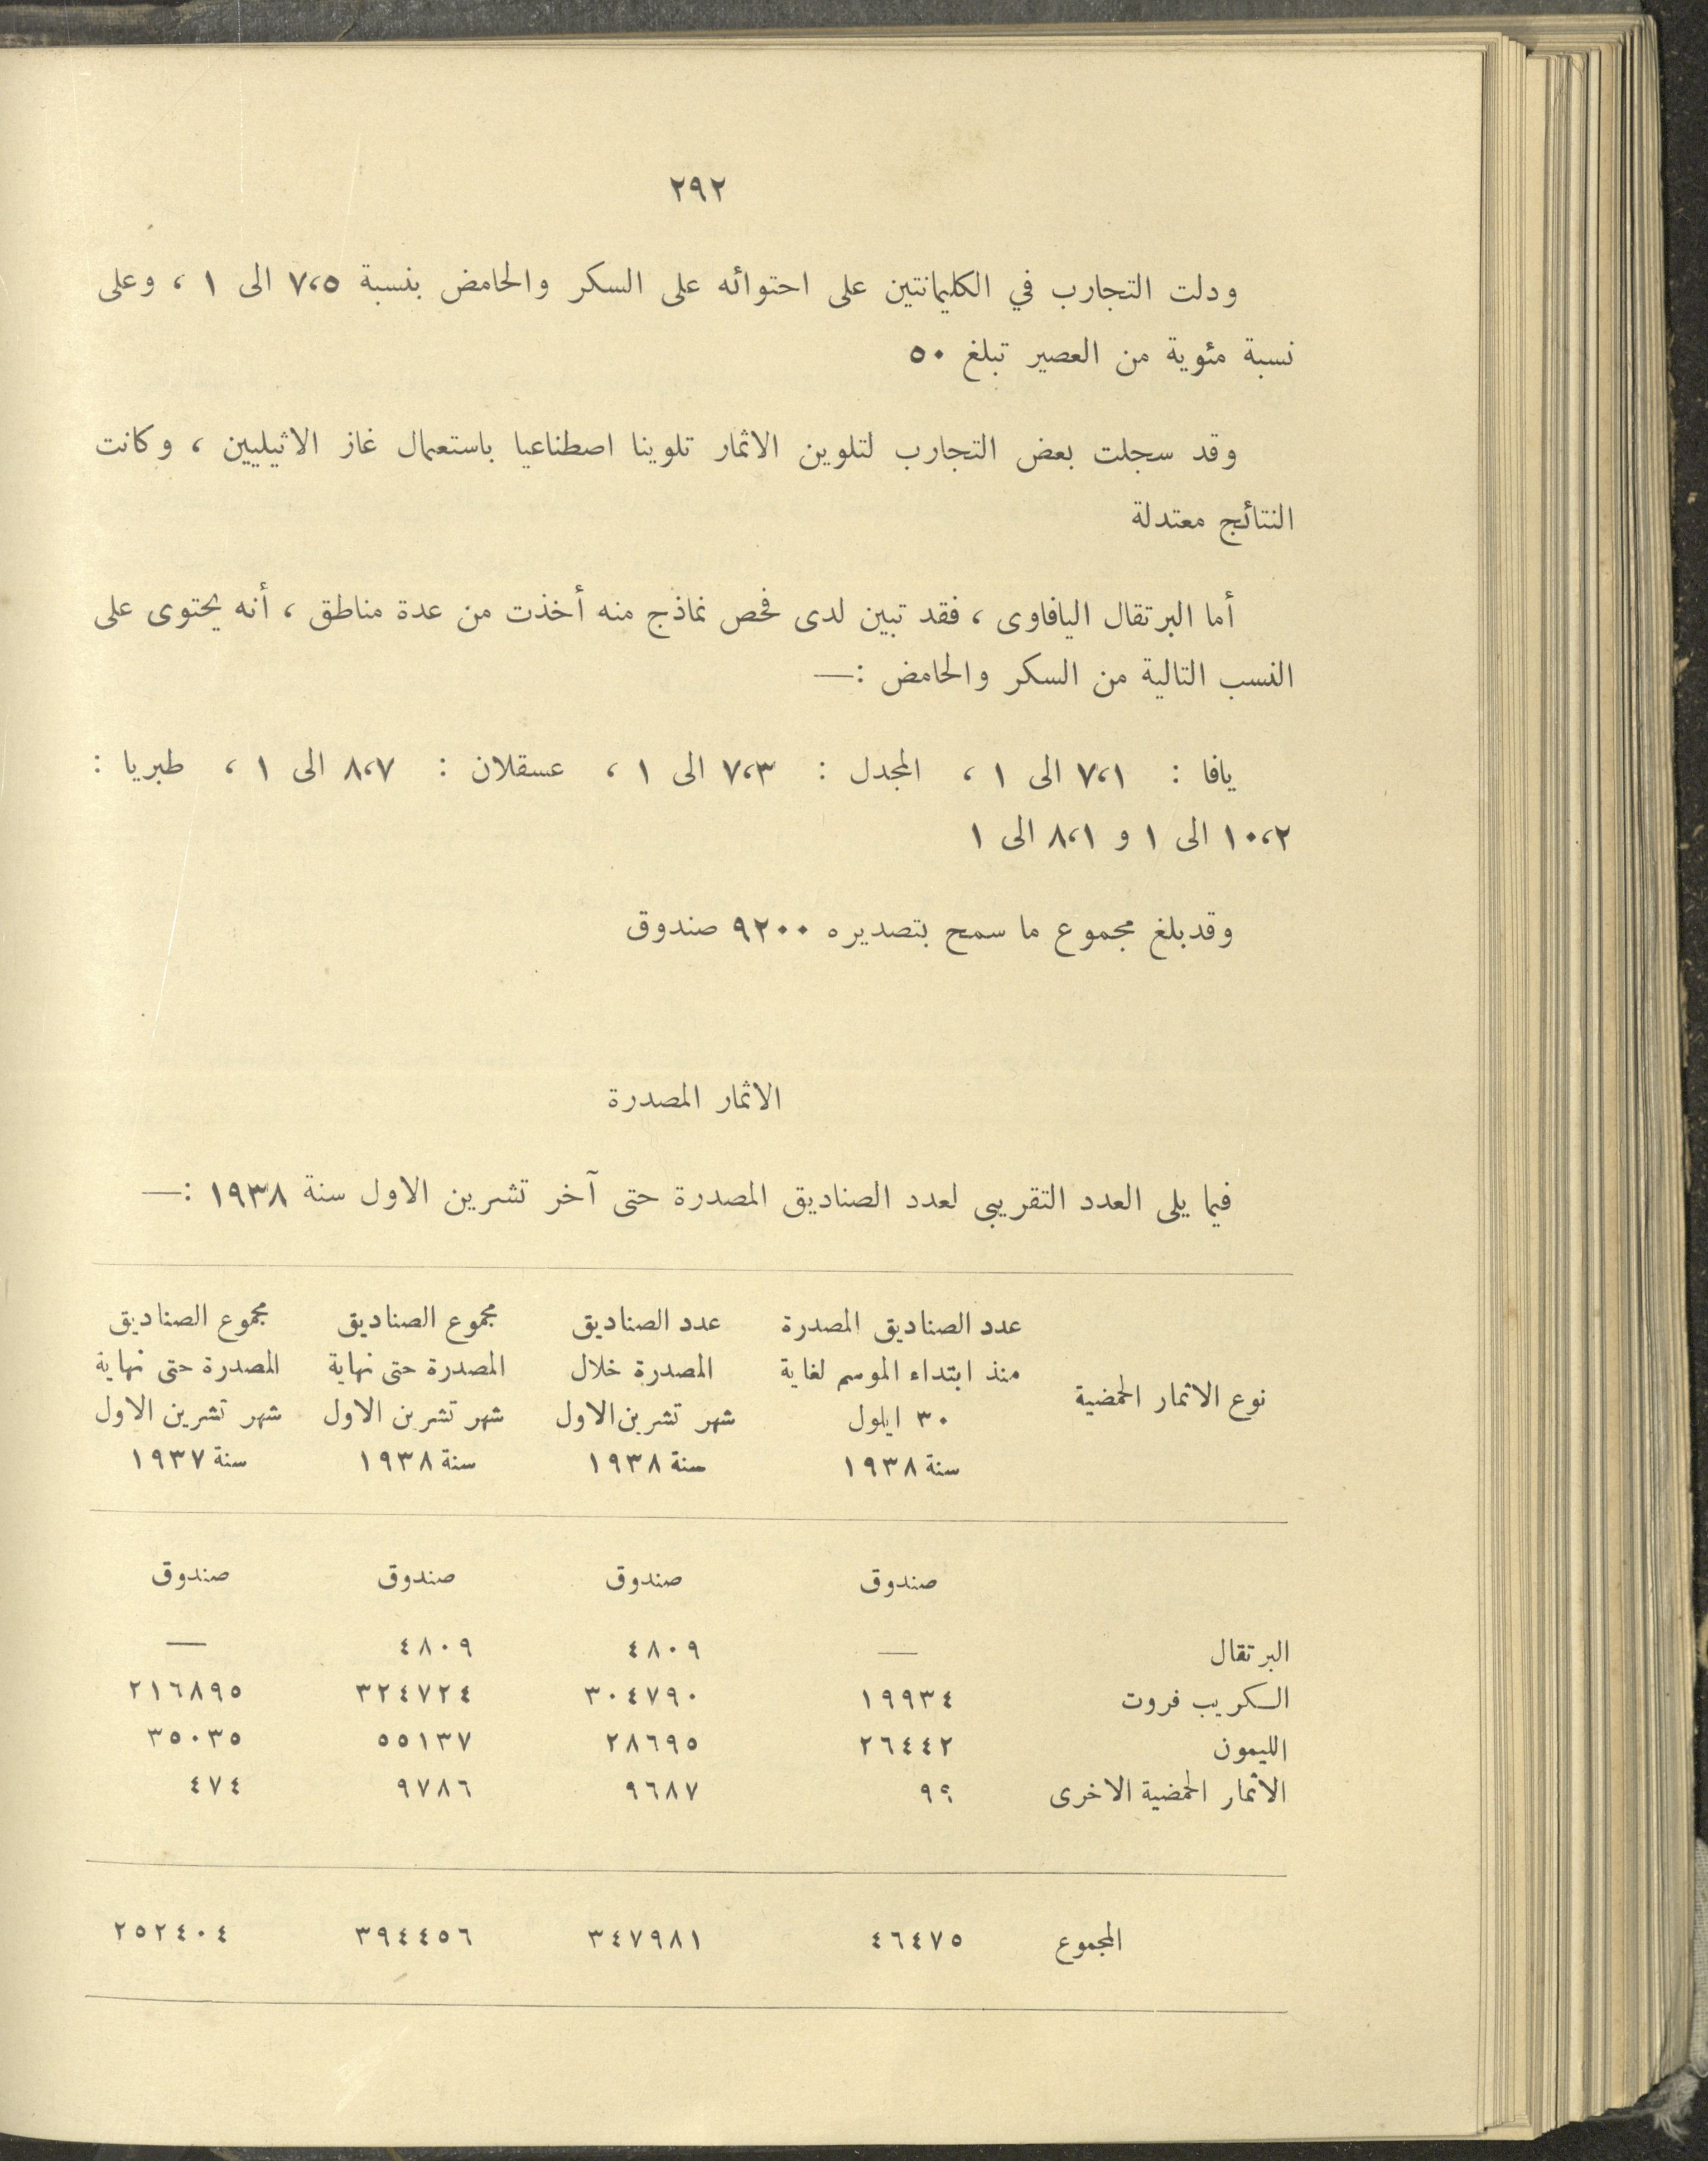 ٢٩٢
ودلت التجارب في الكليمانتين على احتوائه على السكر والحامض بنسبة ٧،٥ الى ١ ، وعلى
نسبة مئوية من العصير تبلغ ٥٠
وقد سجلت بعض التجارب لتلوين الاثمار تلوينا اصطناعيا باستعمال غاز الاثيليين ، وكانت
النتائج معتدلة
أما البرتقال اليافاوى ، فقد تبين لدى فحص نماذج منه أخذت من عدة مناطق ، أنه يحتوى على
النسب التالية من السكر والحامض :—
يافا : ٧،١ الى ١ ، المجدل : ٧،٣ الى ١ ، عسقلان : ٨،٧ الى ١ ، طبريا :
١٠،٢ الى ١ و ٨،١ الى ١
وقد بلغ مجموع ما سمح بتصديره ٩٢٠٠ صندوق
الاثمار المصدرة
فيما يلى العدد التقريبى لعدد الصناديق المصدرة حتى آخر تشرين الاول سنة ١٩٣٨ :—
عدد الصناديق المصدرة عدد الصناديق مجموع الصناديق مجموع الصناديق
منذ ابتداء الموسم لغاية المصدرة خلال المصدرة حتى نهاية المصدرة حتى نهاية
نوع الاثمار الحمضية ٣٠ ايلول شهر تشرين الاول شهر تشرين الاول شهر تشرين الاول
سنة ١٩٣٨ سنة ١٩٣٨ سنة ١٩٣٨ سنة ١٩٣٧
صندوق صندوق صندوق صندوق
البرتقال — ٤٨٠٩ ٤٨٠٩ —
الكريب فروت ١٩٩٣٤ ٣٠٤٧٩٠ ٣٢٤٧٢٤ ٢١٦٨٩٥
الليمون ٢٦٤٤٢ ٢٨٦٩٥ ٥٥١٣٧ ٣٥٠٣٥
الاثمار الحمضية الاخرى ٩٩ ٩٦٨٧ ٩٧٨٦ ٤٧٤
المجموع ٤٦٤٧٥ ٣٤٧٩٨١ ٣٩٤٤٥٦ ٢٥٢٤٠٤